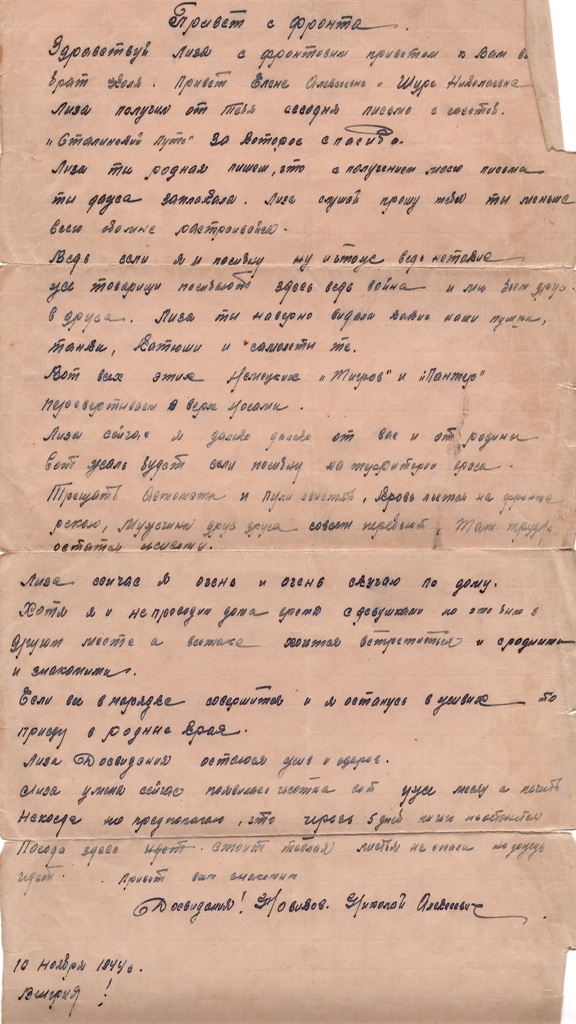 Привет с фронта.
Здравствуй Лиза с фронтовым приветом к Вам в
брат Коля. Привет Елене Алексеевне и Шуре Николаевне
Лиза получил от тебя сегодня письмо с газетой.
"Сталинский путь" за которое спасибо.
Лиза ты родная пишеш, что с получением моего письма
ты даже заплакала. Лиза слушай прошу тебя ты меньше
всего обо мне растроивайся.
Ведь если я и погибну ну и что же ведь не такие
уже товарищи погибают здесь ведь война и мы бьем друг
в друга. Лиза ты наверно видала какие наши пушки,
танки, Катюши и самолеты те.
Вот всех этих Немецких "Тигров" и "Пантер"
перевертываем в верх носами.
Лиза сейчас я далеко далеко от вас и от родины
вот жаль будет если погибну на территории врага.
Трещать Автоматы и пули свистять, кровь льется на фронте
рекою, Мущины друг друга совсем перебьют, Так трудно
остатся живому.
Лиза сейчас я очень и очень скучаю по дому.
Хотя я и не проводил дома время с девушками но это было в
другом месте а всетаки хочится встретиться и с родными
и знакомыми.
Если все в порядке совершится и я останусь в живых то
приеду в родные края.
Лиза Досвидания остаюся жив и здоров.
Лиза у меня сейчас появилась чесотка вот уже месяц а лечить
некогда но предпологаю, что через 5 дней ничего не останется
Погода здесь идет. стоит теплая листья не опали но дождь
идет. Привет всем знакомым
Досвидания! Новиков. Николай Алексеевич
10 ноября 1944 г.
Венгрия!